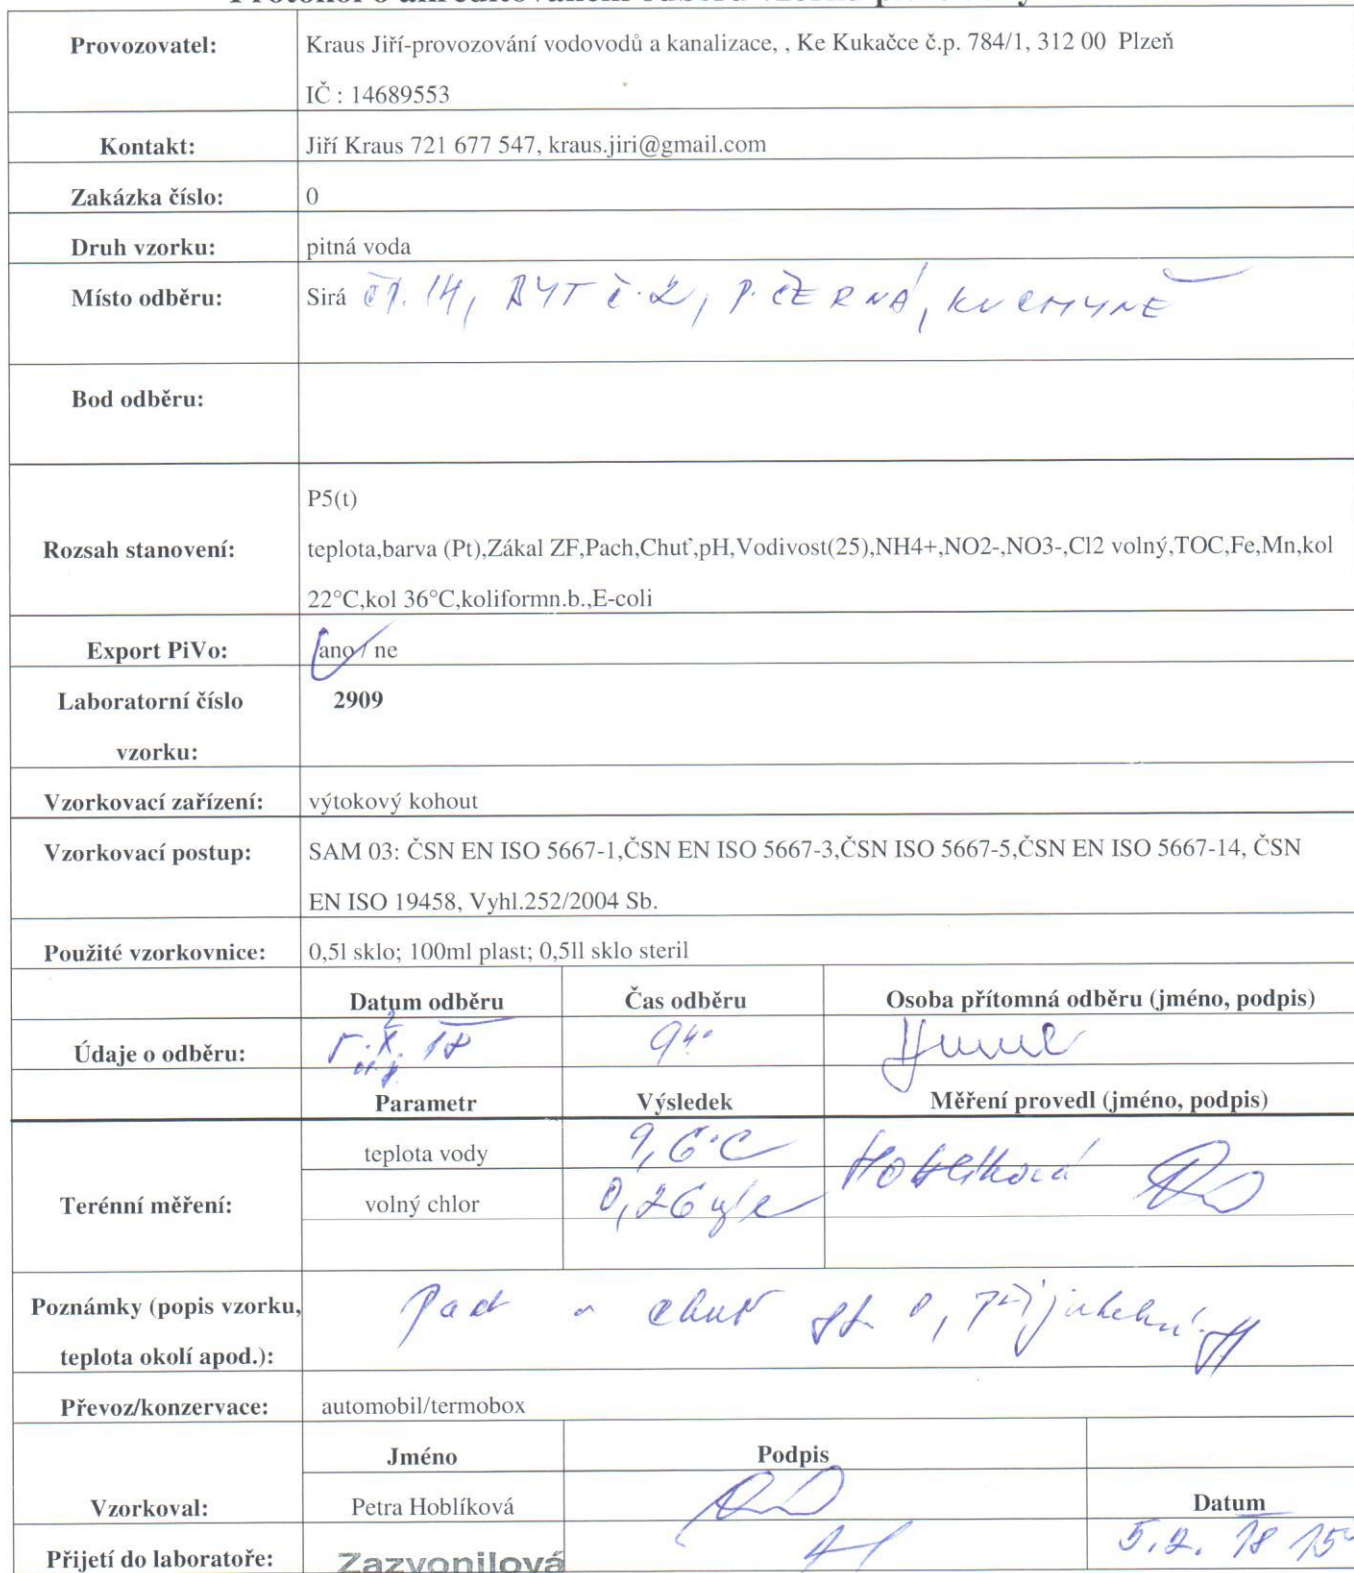 Provozovatel: Kraus Jiří-provozování vodovodů a kanalizace, , Ke Kukačce č.p. 784/1, 312 00 Plzeň
IČ : 14689553
Kontakt: Jiří Kraus 721 677 547, kraus.jiri@gmail.com
Zakázka číslo: 0
Druh vzorku: pitná voda
Místo odběru: Sirá čp. 14, BYT č. 2, p. ČERNÁ, KUCHYNĚ
Bod odběru:
P5(t)
Rozsah stanovení: teplota,barva (Pt),Zákal ZF,Pach,Chuť,pH,Vodivost(25),NH4+,NO2-,NO3-,Cl2 volný,TOC,Fe,Mn,kol
22°C,kol 36°C,koliformn.b.,E-coli
Export PiVo: ano / ne
Laboratorní číslo 2909
vzorku:
Vzorkovací zařízení: výtokový kohout
Vzorkovací postup: SAM 03: ČSN EN ISO 5667-1,ČSN EN ISO 5667-3,ČSN ISO 5667-5,ČSN EN ISO 5667-14, ČSN
EN ISO 19458, Vyhl.252/2004 Sb.
Použité vzorkovnice: 0,5l sklo; 100ml plast; 0,5ll sklo steril
Datum odběru Čas odběru Osoba přítomná odběru (jméno, podpis)
Údaje o odběru: 5. 2. 18 9 40
Parametr Výsledek Měření provedl (jméno, podpis)
teplota vody 9,6°C Hoblíková
Terénní měření: volný chlor 0,26
Poznámky (popis vzorku, Pach a chuť st. 0, přijatelný
teplota okolí apod.):
Převoz/konzervace: automobil/termobox
Jméno Podpis
Vzorkoval: Petra Hoblíková Datum
Přijetí do laboratoře: Zazvonilová 5.2. 18